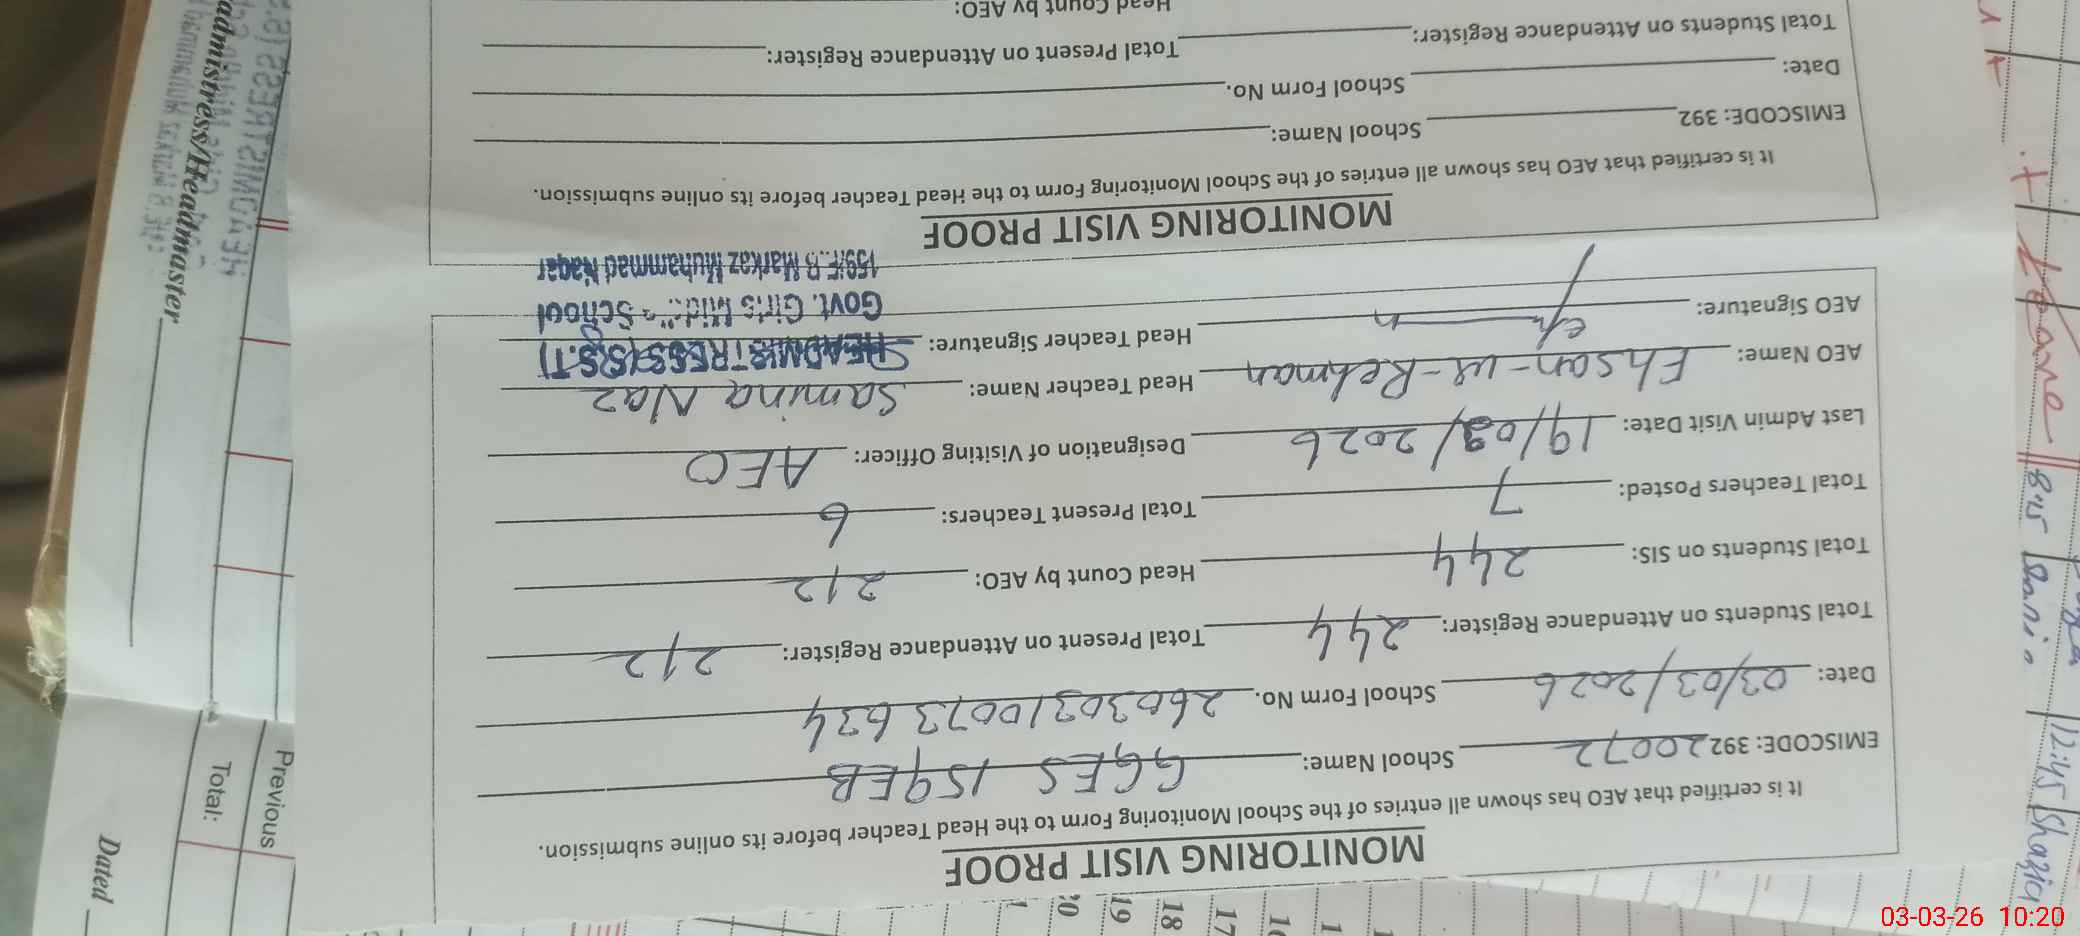 MONITORING VISIT PROOF
It is certified that AEO has shown all entries of the School Monitoring Form to the Head Teacher before its online submission.
EMISCODE: 392 20072 School Name: GGES 159EB
Date: 03/03/2026 School Form No. 26030310073634
Total Students on Attendance Register: 244 Total Present on Attendance Register: 212
Total Students on SIS: 244 Head Count by AEO: 212
Total Teachers Posted: 7 Total Present Teachers: 6
Last Admin Visit Date: 19/02/2026 Designation of Visiting Officer: AEO
AEO Name: Ehsan-ur-Rehman Head Teacher Name: Samina Naz
AEO Signature: Head Teacher Signature:
HEADMISTRESS (S.S.T)
Govt. Girls School
159/E.B Markaz Muhammad Nagar
MONITORING VISIT PROOF
It is certified that AEO has shown all entries of the School Monitoring Form to the Head Teacher before its online submission.
EMISCODE: 392 School Name:
Date: School Form No.
Total Students on Attendance Register: Total Present on Attendance Register:
Head Count by AEO:
Dated
Previous
Total:
admistress/Headmaster
17
18
19
20
12:45 Shazia
8:15
03-03-26 10:20